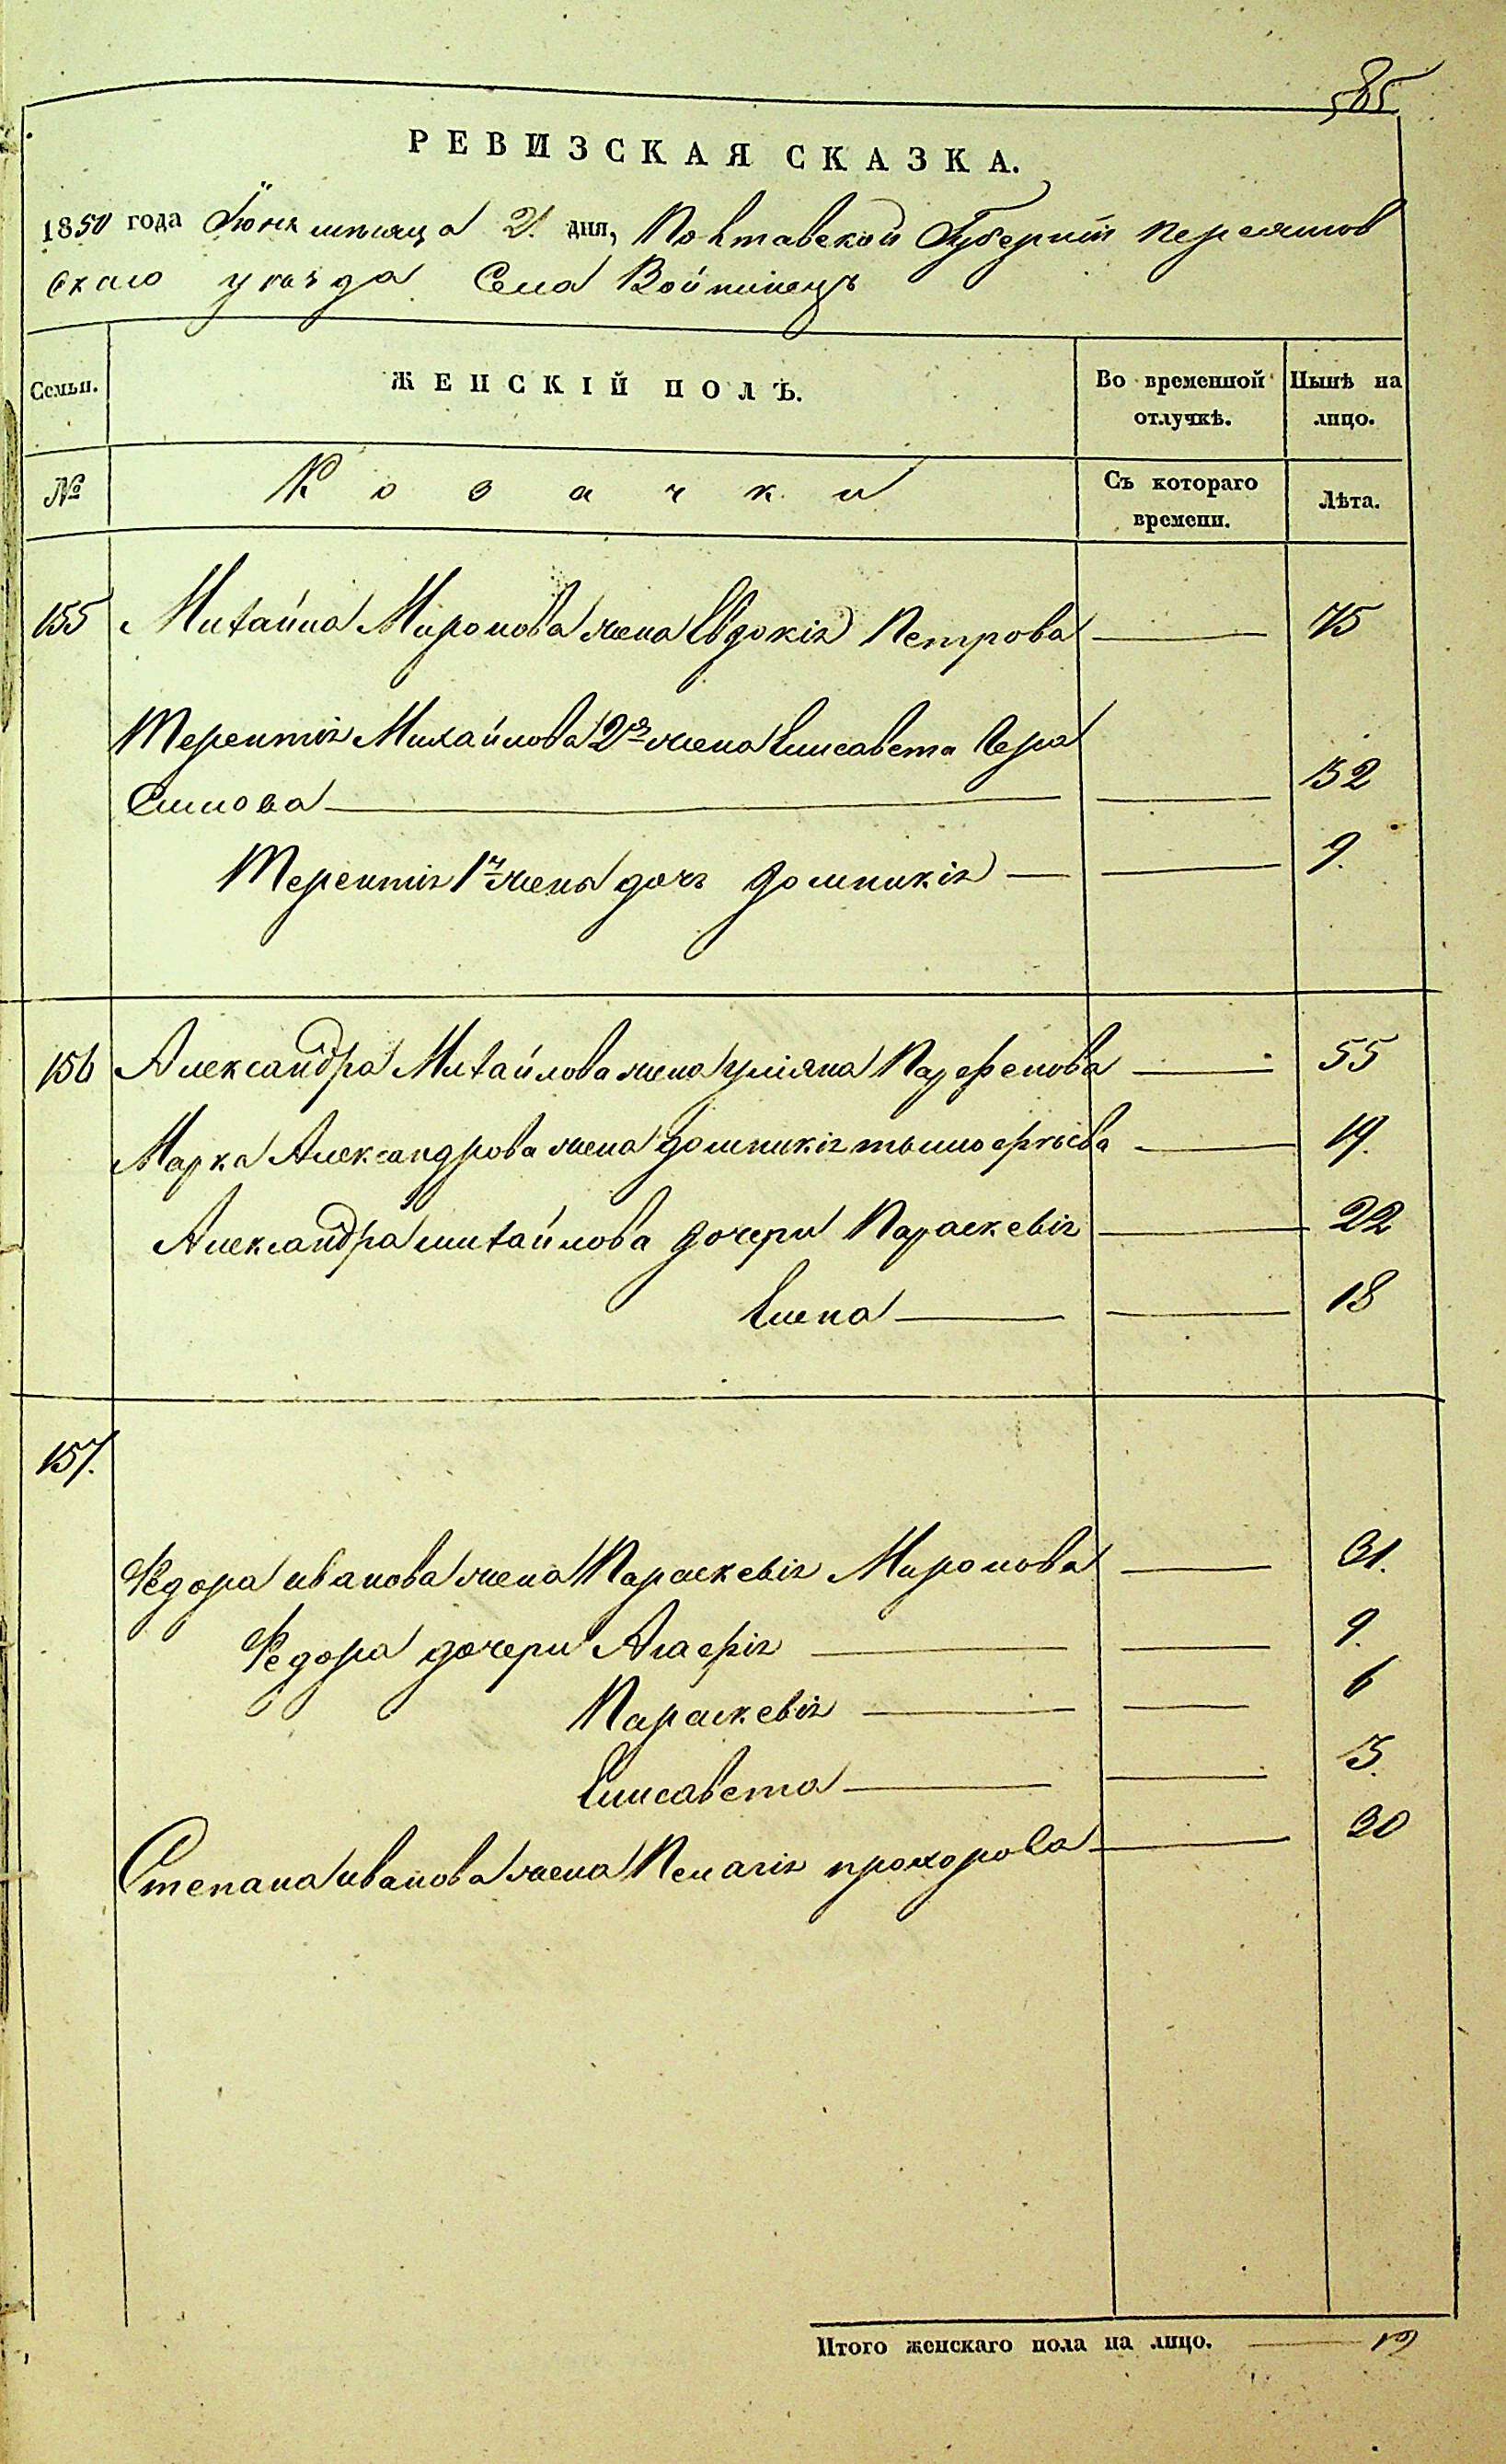 585
РЕВИЗСКАЯ СКАЗКА.
1850 года Іюня мѣсяца 2. дня, Полтавской Губерніи Переяслов
скаго уѣзда Села Войтовецъ
Семьи.
ЖЕНСКІЙ ПОЛЪ.
Во временной отлучкѣ.
Нынѣ на лицо.
№
Козачки
Съ котораго времени.
Лѣта.
155 Михайла Миронова жена Евдокія Петрова 75
Терентія Михайлова 2я жена Елисавета Гера
симова 32
Терентія 1й жены дочь Домникія 9.
156 Александра Михайлова жена Уліяна Парфенова 55
Марка Александрова жена Домникія Тимофѣева 19.
Александра Михайлова дочери Параскевія 22
Елена 18
157.
Федора Иванова жена Параскевія Миронова 31.
Федора дочери Агафія 9.
Параскевія 6
Елисавета 3.
Степана Иванова жена Пелагія Прохорова 30
Итого женскаго пола на лицо. 12